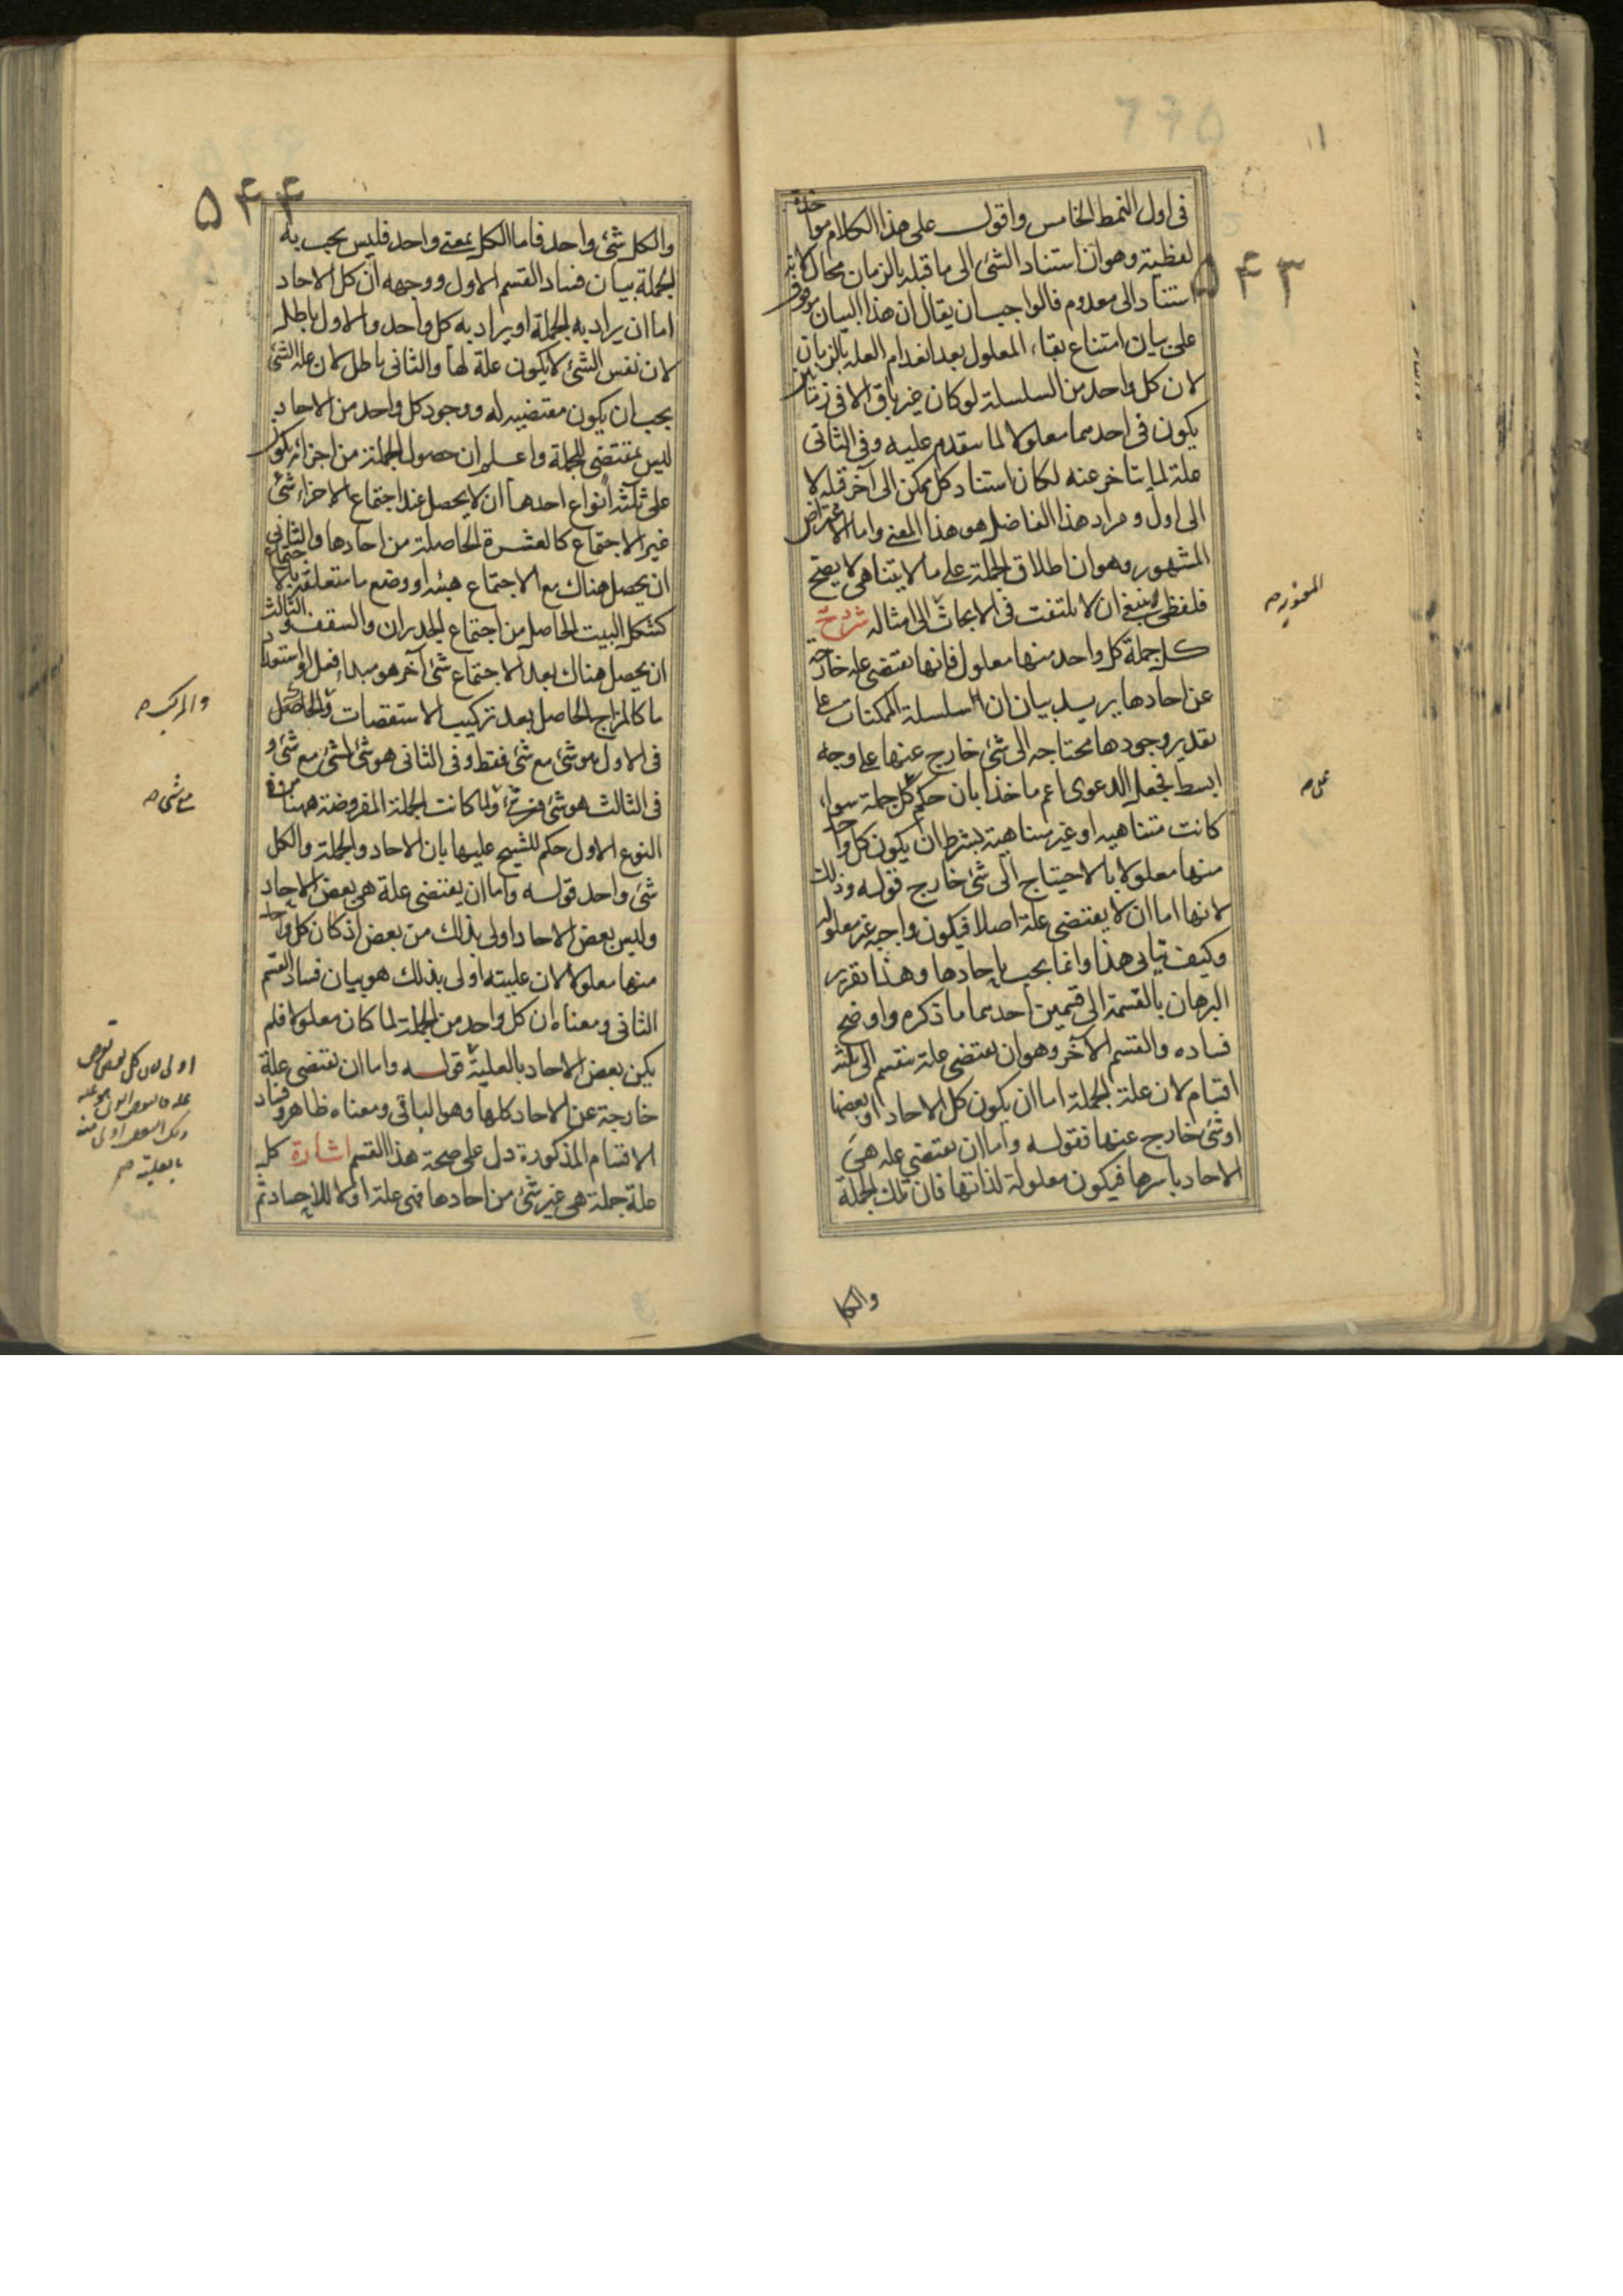 ۵۴۳
فى اول النمط الخامس واقول على هذا الكلام مواخذة
لفظية وهو ان استناد الشئ الى ما قبله بالزمان محال لانه
استناد الى معدوم فالواجب ان يقال ان هذا البيان موقوف
على بيان امتناع بقاء المعلول بعد انعدام العله بالزمان
لان كل واحد من السلسلة لو كان غير باق الا فى زمانين
يكون فى احدهما معلولا لما يتقدم عليه وفى الثانى
علة لما يتاخر عنه لكان استناد كل ممكن الى آخر قبله لا
الى اول ومراد هذا الفاضل هو هذا المعنى واما الاعتراض
المشهور وهو ان اطلاق الجملة على ما لا يتناهى لا يصح
فلفظى ينبغى ان لا يلتفت فى الابحاث الى امثاله شرح
كل جملة كل واحد منها معلول فانها تقتضى علة خارجة
عن احادها يريد بيان ان سلسلة الممكنات على
تقدير وجودها محتاجه الى شئ خارج عنها على وجه
ابسط فجعل الدعوى اعم ماخذا بان حكم كل جملة سواء
كانت متناهيه او غير متناهية بشرط ان يكون كل واحد
منها معلولا بالاحتياج الى شئ خارج قوله وذلك
لانها اما ان لا يقتضى علة اصلا فيكون واجبه غير معلولة
وكيف يتاتى هذا وانما يجب باحادها وهذا تقرير
البرهان بالقسمة الى قسمين احدهما ما ذكره واوضح
فساده والقسم الآخر وهو ان يقتضى علة ينقسم الى ثلثة
اقسام لان علة الجملة اما ان يكون كل الاحاد او بعضها
او شئ خارج عنها فقوله واما ان يقتضى عله هى
الاحاد باسرها فيكون معلولة لذاتها فان تلك الجملة
والكل
۵۴۴
والكل شئ واحد فاما الكل بمعنى واحد فليس يجب به
الجملة بيان فساد القسم الاول ووجهه ان كل الاحاد
اما ان يراد به الجملة او يراد به كل واحد والاول باطل
لان نفس الشئ لا يكون علة لها والثانى باطل لان علة الشئ
يجب ان يكون مقتضيه له ووجود كل واحد من الاحاد
ليس بمقتضى للجملة واعلم ان حصول الجملة من اجزائ يكون
على ثلثة انواع احدها ان لا يحصل عند اجتماع الاجزاء شئ
غير الاجتماع كالعشرة الحاصلة من احادها والثانى
ان يحصل هناك مع الاجتماع هيئه او وضع ما متعلقه بالاجتماع
كشكل البيت الحاصل من اجتماع الجدران والسقف والثالث
ان يحصل هناك بعد الاجتماع شئ آخر هو مبداء فعل او استعداد
ما كالمزاج الحاصل بعد تركيب الاستقصات والحاصل
فى الاول هو شئ مع شئ فقط وفى الثانى هو شئ لشئ مع شئ و
فى الثالث هو شئ من شئ ولما كانت الجملة المفروضة ههنا من
النوع الاول حكم الشيخ عليها بان الاحاد والجملة والكل
شئ واحد قوله واما ان يقتضى علة هى بعض الاحاد
وليس بعض الاحاد اولى بذلك من بعض اذ كان كل واحد
منها معلولا لان عليته اولى بذلك هو بيان فساد القسم
الثانى ومعناه ان كل واحد من الجملة لما كان معلولا فلم
يكن بعض الاحاد بالعلية قوله واما ان تقتضى علة
خارجة عن الاحاد كلها وهو الباقى ومعناه ظاهر وفساد
الاقسام المذكورة دل على صحة هذا القسم اشارة كل
علة جملة هى غير شئ من احادها فهى علة اولا للاحاد ثم